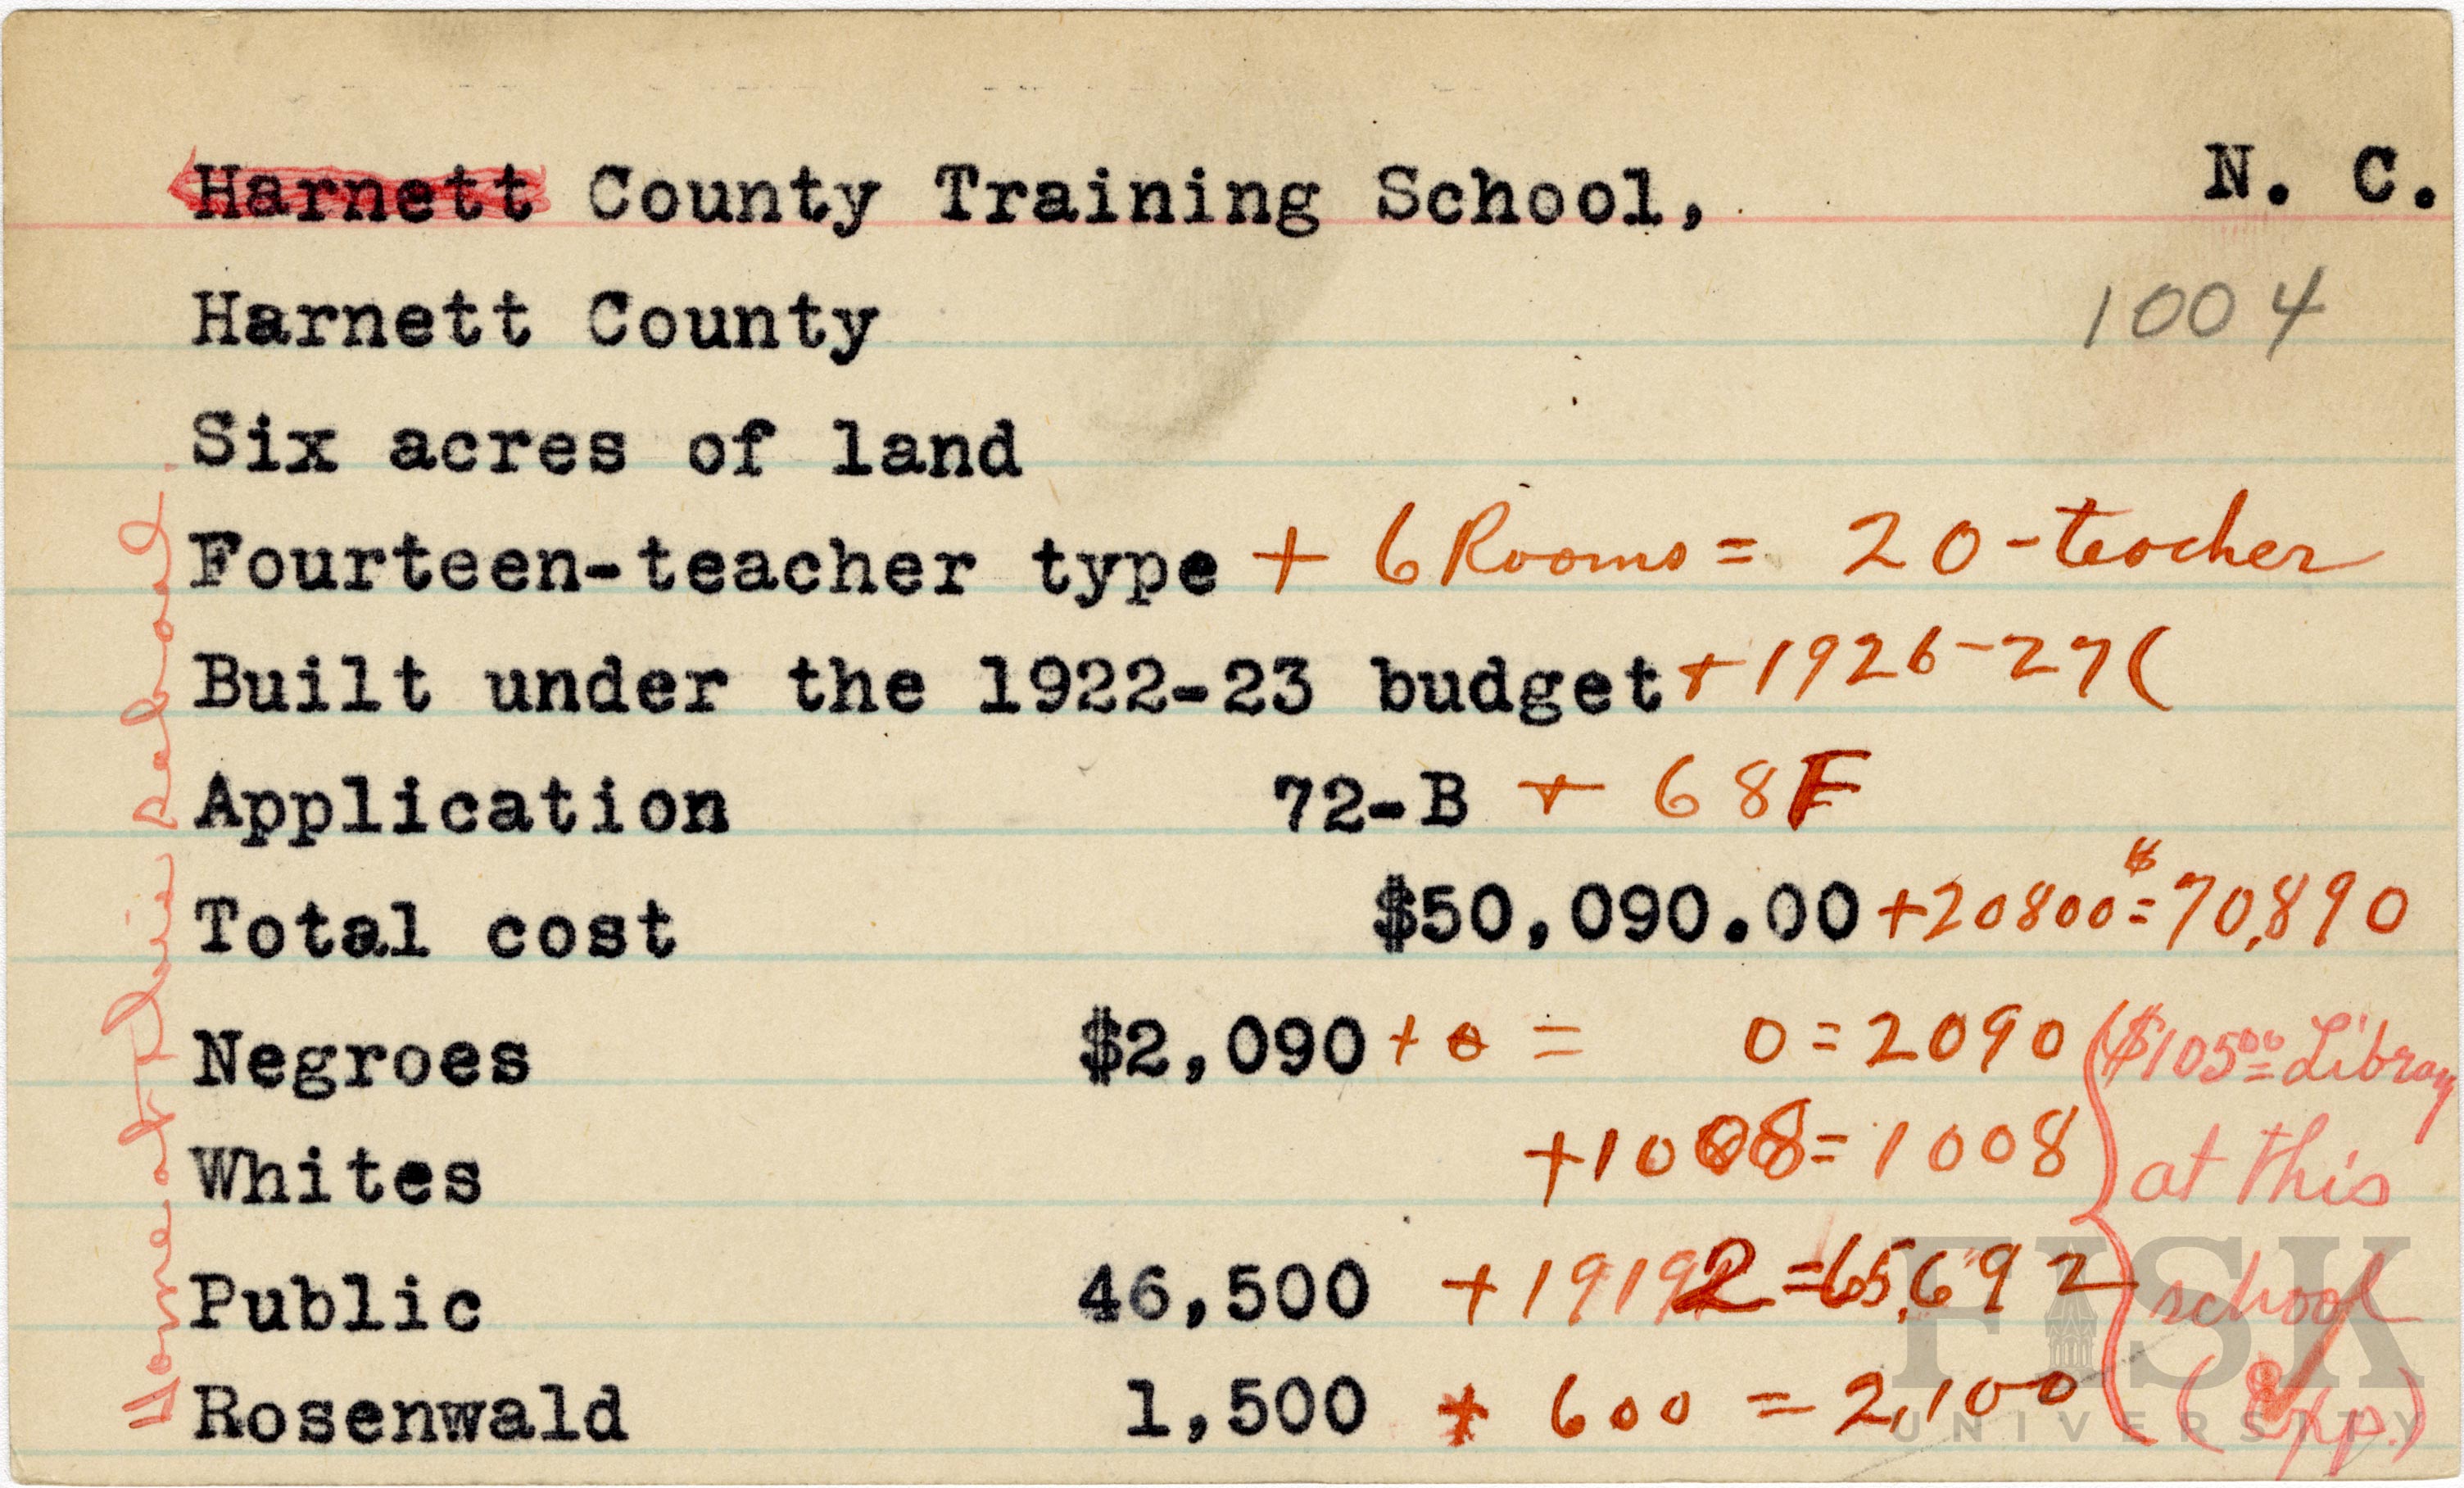 Harnett County Training School, N. C.
Harnett County 1004
Six acres of land
Fourteen-teacher type + 6 Rooms = 20-teacher
Built under the 1922-23 budget + 1926-27(
Application 72-B + 68F
Total cost $50,090.00 + 20800 = $70,890
Negroes $2,090 + 0 = 0 = 2090
Whites +1008 = 1008
Public 46,500 + 19192 = 65,692
Rosenwald 1,500 + 600 = 2,100
($105.00 Library
at this
school
Home at this school.
FISK
UNIVERSITY